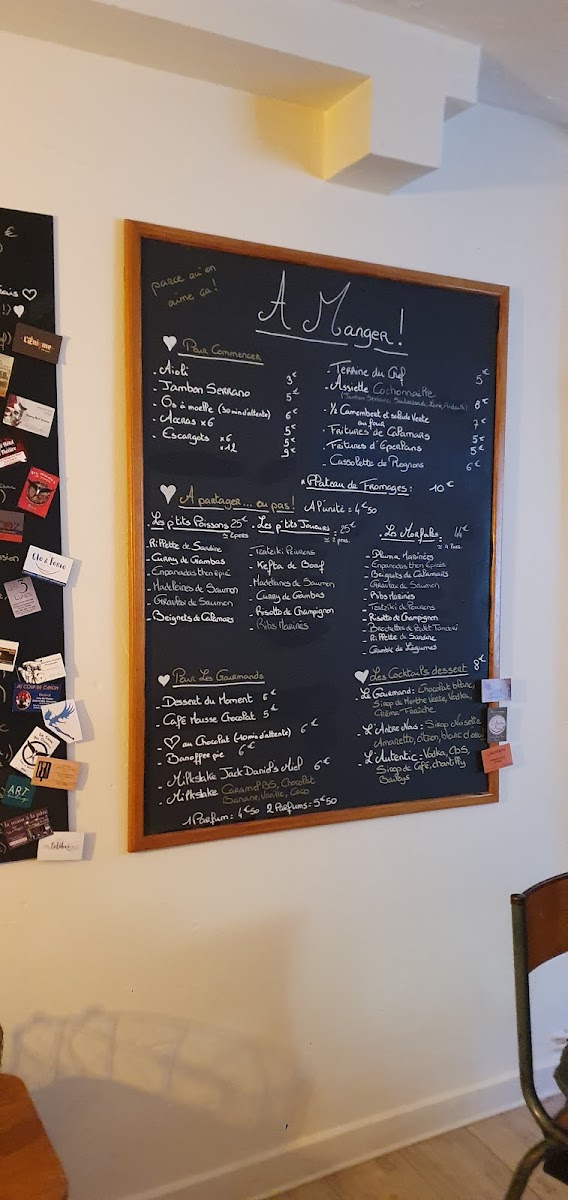 parce qu'on
aime ça!
A Manger!
Pour Commencer
- Aïoli 3€
- Jambon Serrano 5€
- Os à moelle (30 min d'attente) 6€
- Accras x6 5€
- Escargots x6 5€
x12 9€
- Terrine du Chef 5€
- Assiette Cochonnaille 8€
- ½ Camembert et salade Verte 7€
au four
- Fritures de Calamars 5€
- Fritures d'Eperlans 5€
- Cassolette de Rognons 6€
* Plateau de Fromages: 10€
A l'unité: 4€50
A partager... ou pas!
- Les p'tits Poissons 25€
- Rillette de Sardine
- Curry de Gambas
- Empanadas thon épicé
- Madeleines de Saumon
- Gravlax de Saumon
- Beignets de Calamars
- Les p'tits Joueurs: 25€
- Tzatziki Poivrons
- Kefta de Boeuf
- Madeleines de Saumon
- Curry de Gambas
- Risotto de Champignon
- Ribs Marinés
- Les Morfales: 44€
- Pluma Marinées
- Empanadas thon épicés
- Beignets de Calamars
- Gravlax de Saumon
- Ribs Marinés
- Tzatziki de Poivrons
- Risotto de Champignon
- Brochettes de Poulet Tandoori
- Rillette de Sardine
- Crumble de Légumes
Pour Les Gourmands
- Dessert du Moment 6€
- Café Mousse Chocolat 5€
- ♡ au Chocolat (10 min d'attente) 6€
- Banoffee pie 6€
- Milkshake Jack Daniel's Miel 6€
- Milkshake Caramel BS, Chocolat
Banane, Vanille, Coco
1 Parfum: 4€50 2 Parfums: 5€50
Les Cocktails dessert 8€
- Le Gourmand: Chocolat blanc,
Sirop de Menthe Verte, Vodka,
Crème Fraîche
- L'Autre Nous: Sirop Noisette
Amaretto, citron, blanc d'oeuf
- L'Autentic: Vodka, CBS,
Sirop de Café, chantilly
Baileys
L'Énigme
Clo & Tonio
3
ART